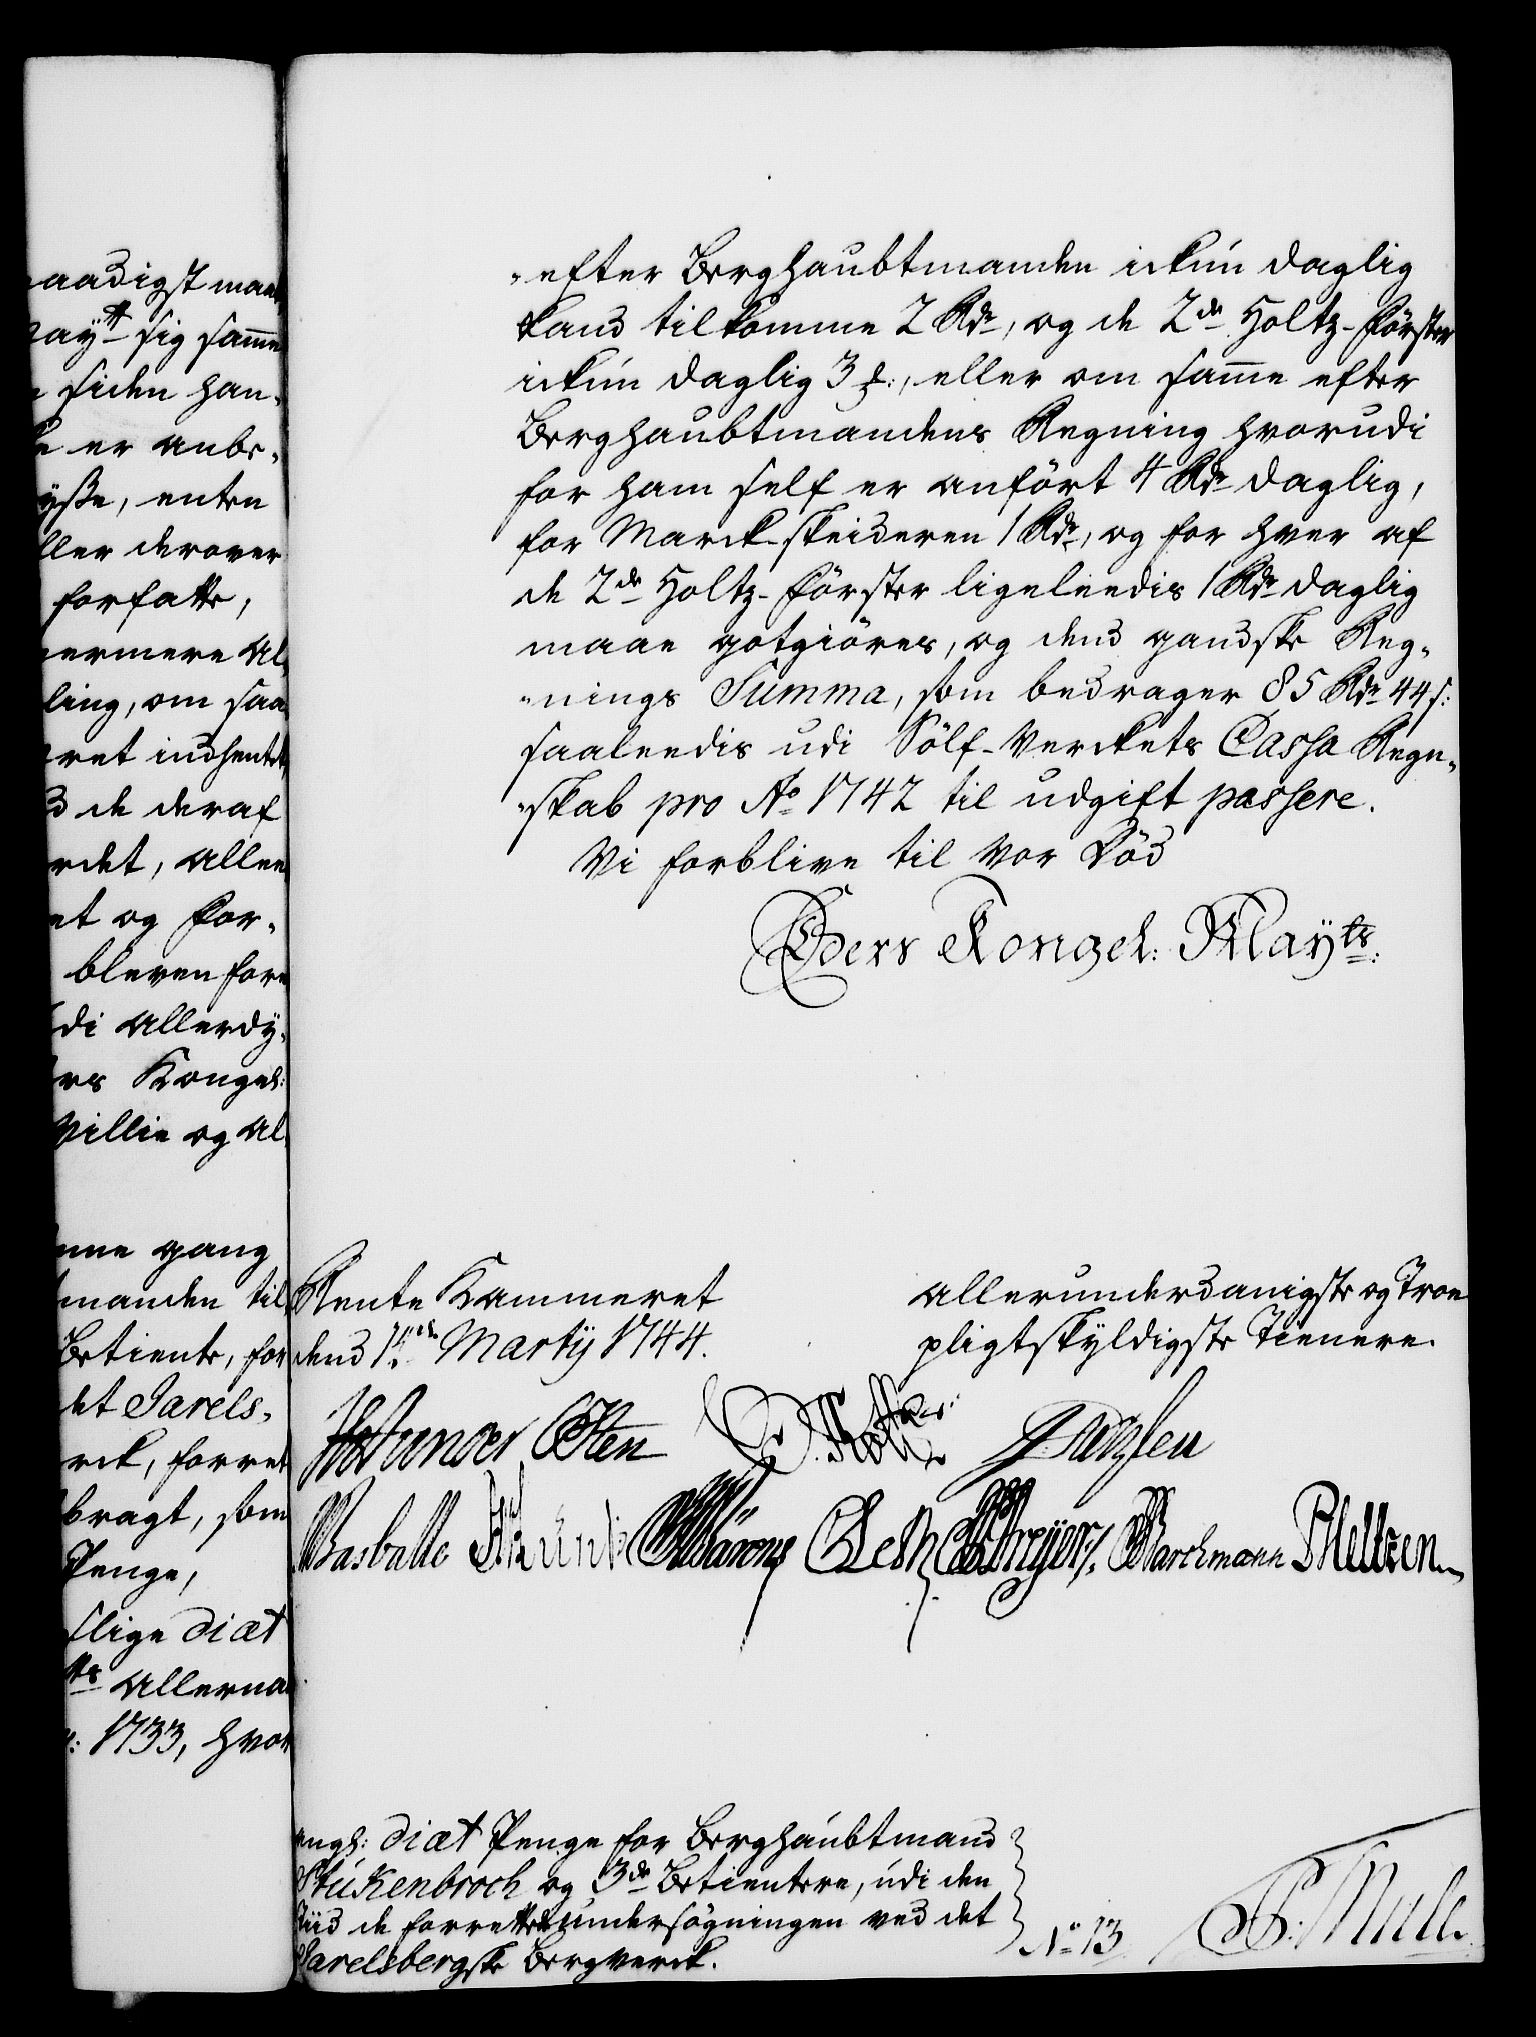 aadigst maae
Mayᵗᵗ sig samme
siden han-
er anbe-
yße, enten
ller derover
forfatte,
nermere Al-
ling, om saa
ret indhentet,
d de deraf
rdet, allene
et og for-
bleven fore
di allerdy-
rs Kongel:
Villie og Al-
nne gang
manden til
Betiente, for
det Jarels-
rck, forret
bragt, som
Penge,
slige diæt
ᵗᵗˢ allerna
: 1733, hvor
-efter Berghaubtmanden ickun daglig
kand tilkomme 2 Rdr, og de 2de Holtz-Förster
ickun daglig 3 ƶ:, eller om samme efter
Berghaubtmandens Regning hvorudi
for ham self er anfört 4 Rdr daglig,
for Marck-skeideren 1 Rdr, og for hver af
de 2de Holtz-Förster ligeleedis 1 Rdr daglig
maae gotgiöres, og dend gandske Reg-
-nings Summa, som bedrager 85 Rdr 44 s:
saaleedis udi Sölf-Verckets Cassa Regn-
-skab pro Ao 1742 til udgift passere.
Vi forblive til vor Död
Eders Kongel: Mayts:
Rente Kammeret
dend 14de Martij 1744.
allerunderdanigste og Troe
pligtskyldigste Tienere.
Basballe Künk Leth Dreyer Barchmann PMeltzen
angl: diæt Penge for Berghaubtmand
Stukenbroch og 3de Betientere, udi den
Tiid de forrettede undersögningen ved det
Jarelsbergske Bergverck.
No 13
P: Mule.